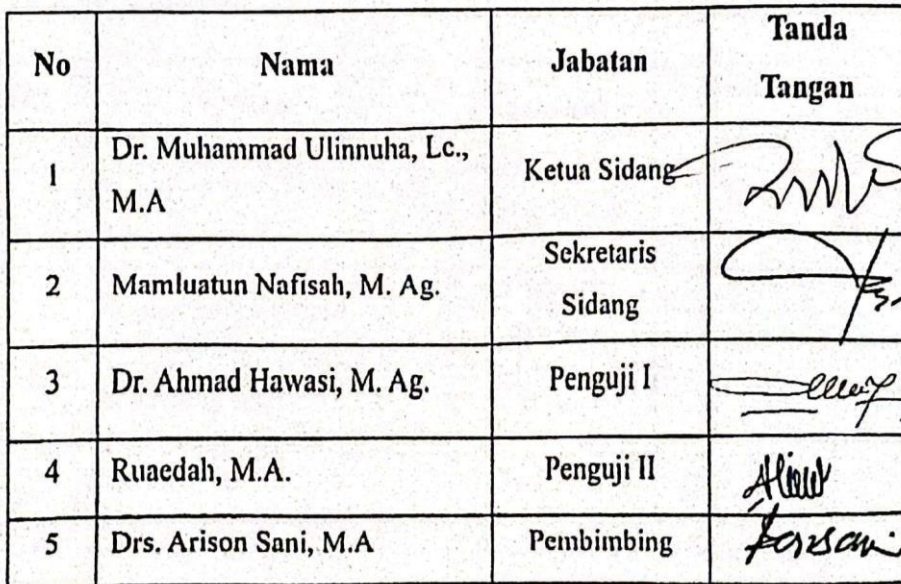 No Nama Jabatan Tanda
Tangan
1 Dr. Muhammad Ulinnuha, Lc.,
M.A Ketua Sidang
2 Mamluatun Nafisah, M. Ag. Sekretaris
Sidang
3 Dr. Ahmad Hawasi, M. Ag. Penguji I
4 Ruaedah, M.A. Penguji II
5 Drs. Arison Sani, M.A Pembimbing